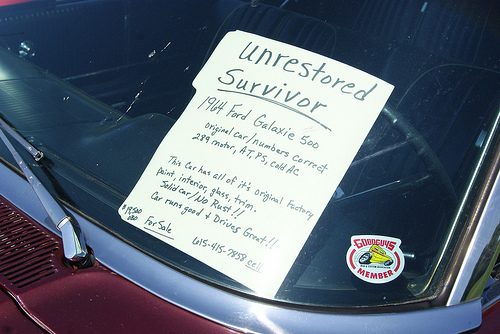 unrestored
Survivor
1964 Ford Galaxie 500
original car/numbers correct
289 motor, AT, PS, cold AC
This Car has all of it's original Factory
paint, interior, glass, trim.
Solid car/No Rust!!
Car runs good & Drives Great!!
For Sale
615-415-7858 cell
GOODGUYS
MEMBER